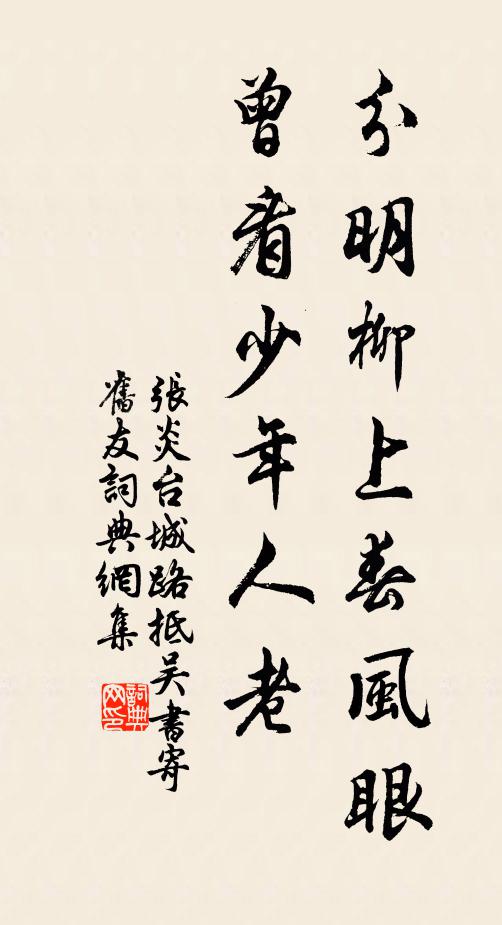 分明柳上春風眼
曾看少年人老
張炎台城路抵吴書寄
舊友詞典網集
詞典
网印